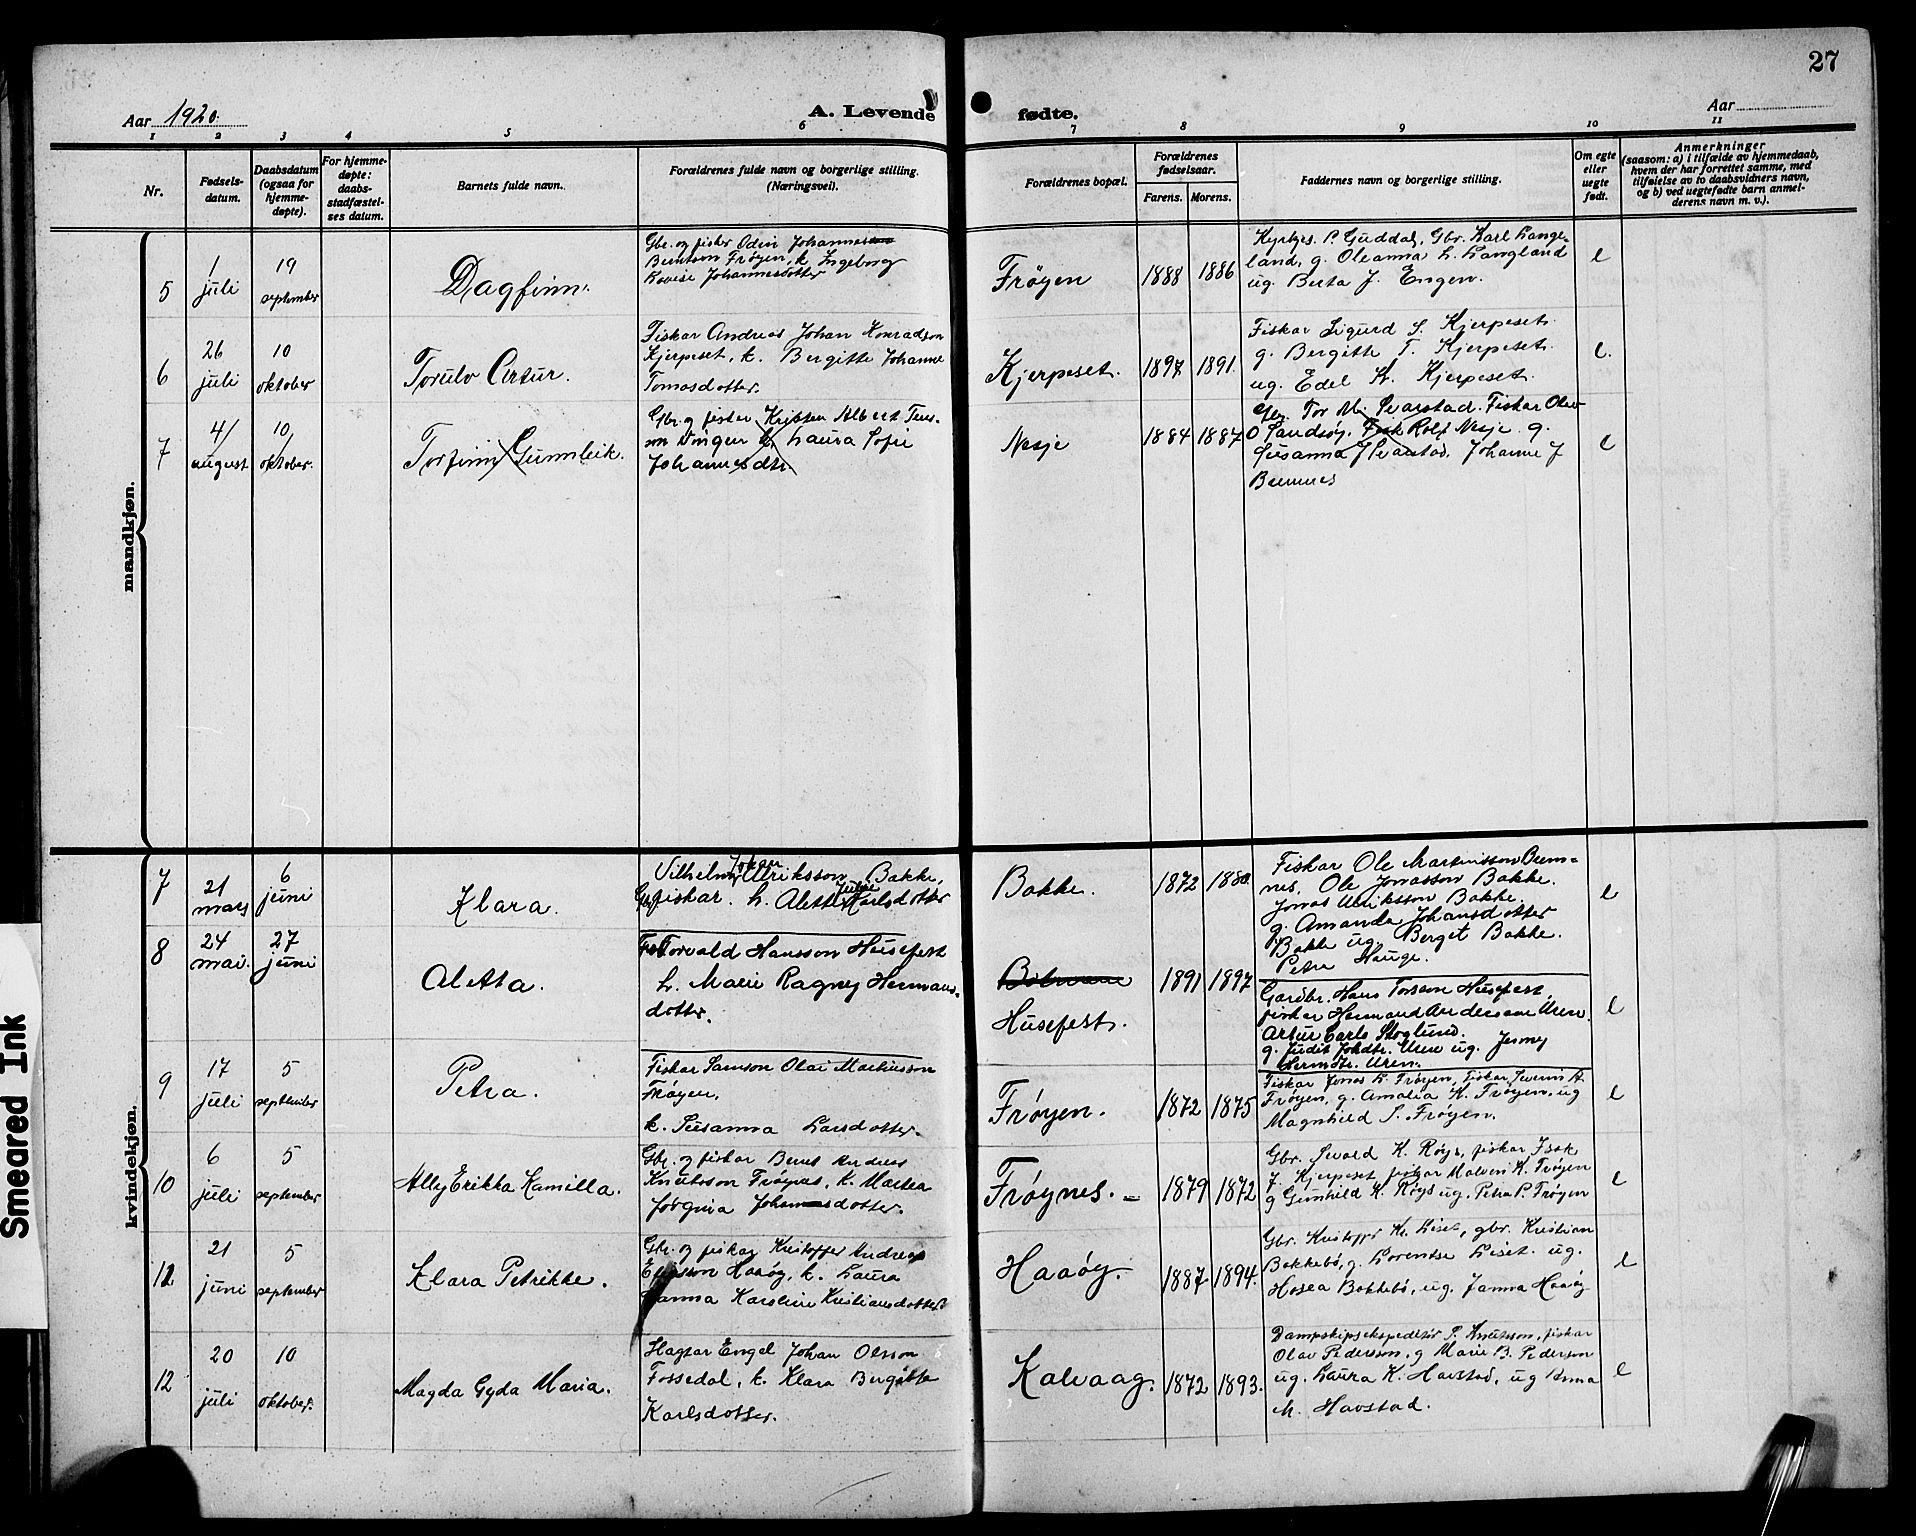 27
Aar 1920.
A. Levende fødte.
Aar
1 2 3 4 5 6 7 8 9 10 11
Nr.
Fødsels-
datum.
Daabsdatum
(ogsaa for
hjemme-
døpte).
For hjemme-
døpte:
daabs-
stadfæstel-
ses datum.
Barnets fulde navn.
Forældrenes fulde navn og borgerlige stilling.
(Næringsvei).
Forældrenes bopæl.
Forældrenes
fødselsaar.
Farens. Morens.
Faddernes navn og borgerlige stilling.
Om egte
eller
uegte
født.
Anmerkninger
(saasom: a) i tilfælde av hjemmedaab,
hvem der har forrettet samme, med
tilføielse av to daabsvidners navn,
og b) ved uegtefødte barn anmel-
derens navn m. v.).
mandkjøn.
5
1
juli
19
september
Dagfinn.
Gbr. og fisker Odin Johannes
Berntson Frøyen, k. Ingeborg
Lovise Johannesdotter
Frøyen
1888 1886
Kyrkjes. P. Guddal, Gbr. Karl Lange-
land, g. Oleanna L. Langland
ug. Berta J. Engen.
e
6
26
juli
10
oktober
Torulv Artur.
Fiskar Andreas Johan Konradson
Kjerpeset, k. Bergitte Johanne
Tomasdotter.
Kjerpeset.
1897 1891.
Fiskar Sigurd S. Kjerpeset.
g. Bergitte T. Kjerpeset.
ug. Edel K. Kjerpeset.
e.
7
4/
august
10/
oktober.
Torfinn Gunnleik.
Gbr. g fisker Kristen Albert
son Vingen k. Laura Sofie
Johannesdtr.
Nesje
1884 1887
Gbr. Tor M. Svarstad. Fiskar Olav
O Sandsøy. Fisk Rolf Nesje g.
Susanna J Svarstad. Johanne J
Bremnes
e
kvindekjøn.
7
21
mars
6
juni
Klara.
Vilhelm Johan Ulriksson Bakke,
Gbr fiskar. h. Alette Julie Karlsdotter
Bakke.
1872 1880.
Fiskar Ole Martinsson Brem-
nes, Ole Jonasson Bakke.
Jonas Ulriksson Bakke.
g. Amanda Johansdotter
Bakke ug. Berget Bakke.
Petra Hauge.
e
8
24
mai.
27
juni
Aletta.
Torvald Hansson Husefest
h. Marie Ragny Hermans-
dotter.
Husefest.
1891 1897
Gardbr. Hans Torsson Husefest
fiskar Hermand Andersson Uren.
Artur Carls Skoglund.
g. Judit Johdtr. Uren ug. Jenny
Hermdtr. Uren.
e
9
17
juli
5
september
Petra.
Fiskar Samson Olai Mathisson
Frøyen,
k. Susanna Larsdotter.
Frøyen.
1872 1875
Fiskar Jonas L. Frøyen, fiskar Severin A.
Frøyen, g. Amalia K. Frøyen, ug
Magnhild S. Frøyen.
e
10
6
juli
5
september
Ally Erikka Kamilla.
Gbr. og fiskar Bernt Andreas
Knutsson Frøynes, k. Martea
Jørgina Johannesdotter.
Frøynes. -
1879 1872
Gbr. Sivald K. Røys, fiskar Isak
J. Kjerpeset fiskar Malvin K. Frøyen
g Gunhild K. Røys ug. Petra P. Frøyen
e
12
21
juni
5
september
Klara Petrikke.
Gbr. og fiskar Kristoffer Andreas
Haaøy, k. Laura
Janna Karoline Kristiansdotter
Haaøy.
1887 1894.
Gbr. Kristoffer Kr. Liset, gbr. Kristian
Bakkebø, g. Lorentse Liset. ug.
Hosea Bakkebø, ug. Janna Haaøy
e
12
20
juli
10
oktober.
Magda Gyda Maria.
Engel Johan Olsson
Fossedal, k. Klara Bergitta
Karlsdotter.
Kalvaag.
1872 1893.
Dampskipsekspeditør P. Knutsson, fiskar
Olav Pederson, g Marie B. Pederson
ug. Laura K. Havstad, ug Anna
M. Havstad.
e
Smeared Ink